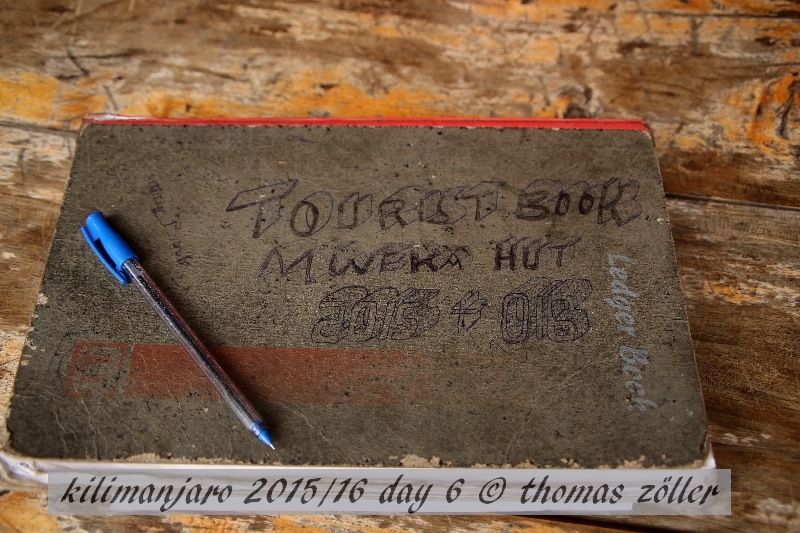 TOURIST BOOK
MWEKA HUT
Ledger Book
kilimanjaro 2015/16 day 6 © thomas zöller